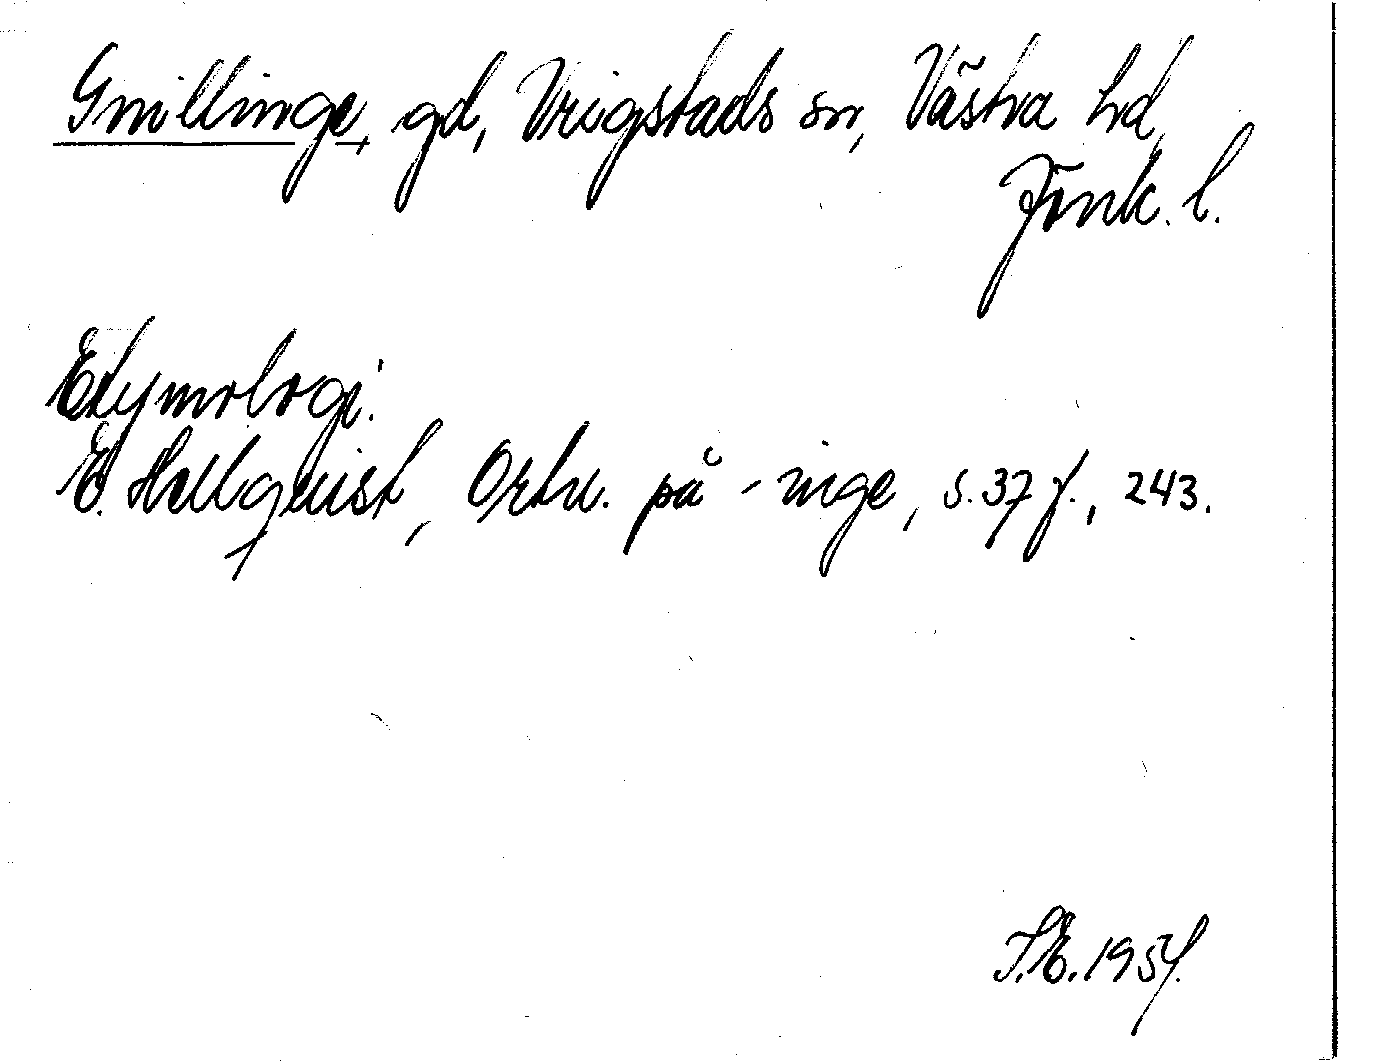 Gnillinge, gd, Vrigstads sn, Västra hd,
Jönk. l.
Etymologi:
E. Hellquist, Ortn. på -inge, s. 37 f., 243.
S.E. 1957.